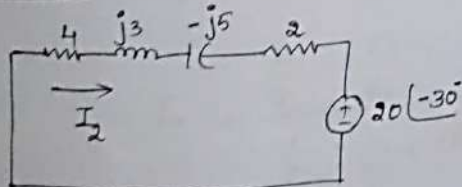 4 j3 -j5 2
I₂
± 20∠-30°